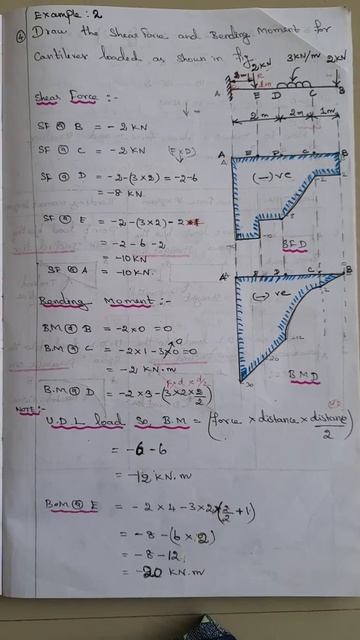 Example : 2
④ Draw the Shear Force and Bending Moment for
Cantilever loaded as shown in fig.
2KN 3KN/m 2KN
A E D C B
2m 2m 1m
Shear Force :-
SF @ B = -2 KN
SF @ C = -2 KN
SF @ D = -2-(3×2) = -2-6
= -8 KN
SF @ E = -2-(3×2)-2
= -2-6-2
= -10KN
SF @ A = -10KN
A E D C B
(-)ve
SFD
A E D C B
(-)ve
BMD
Bending Moment :-
B.M @ B = -2×0 = 0
B.M @ C = -2×1-3×0 = 0
= -2 KN.m
B.M @ D = -2×3-(3×2×2/2)
NOTE:-
U.D.L load So, B.M = (force × distance × distance/2)
= -6 -6
= -12 KN.m
B.M @ E = -2×4-3×2×(2/2+1)
= -8-(6×2)
= -8-12
= -20 KN.m